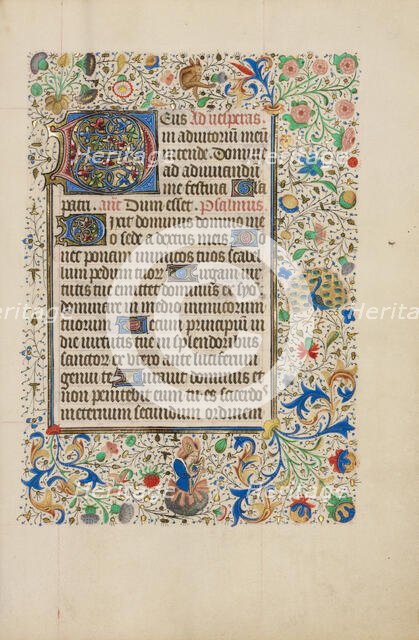 Deus Ad vesperas
in adiutorium meũ
intende. Domine
ad adiuvandũ
me festina Gla
patri. añt Dum esset. Psalmus
Dixit dominus domino me
o sede a dextris meis Do
nec ponam inimicos tuos scabel
lum pedum tuorũ Virgam vir
tutis tue emittet dominus ex syo
dominare in medio inimicorum
tuorum Tecum principium
die virtutis tue in splendoribus
sanctorũ ex utero ante luciferum
genui te Iuravit dominus et
non penitebit eum tu es sacerdos
in eternum secundum ordinem